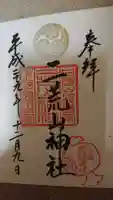 奉拝
二荒山神社
平成二十九年十二月九日